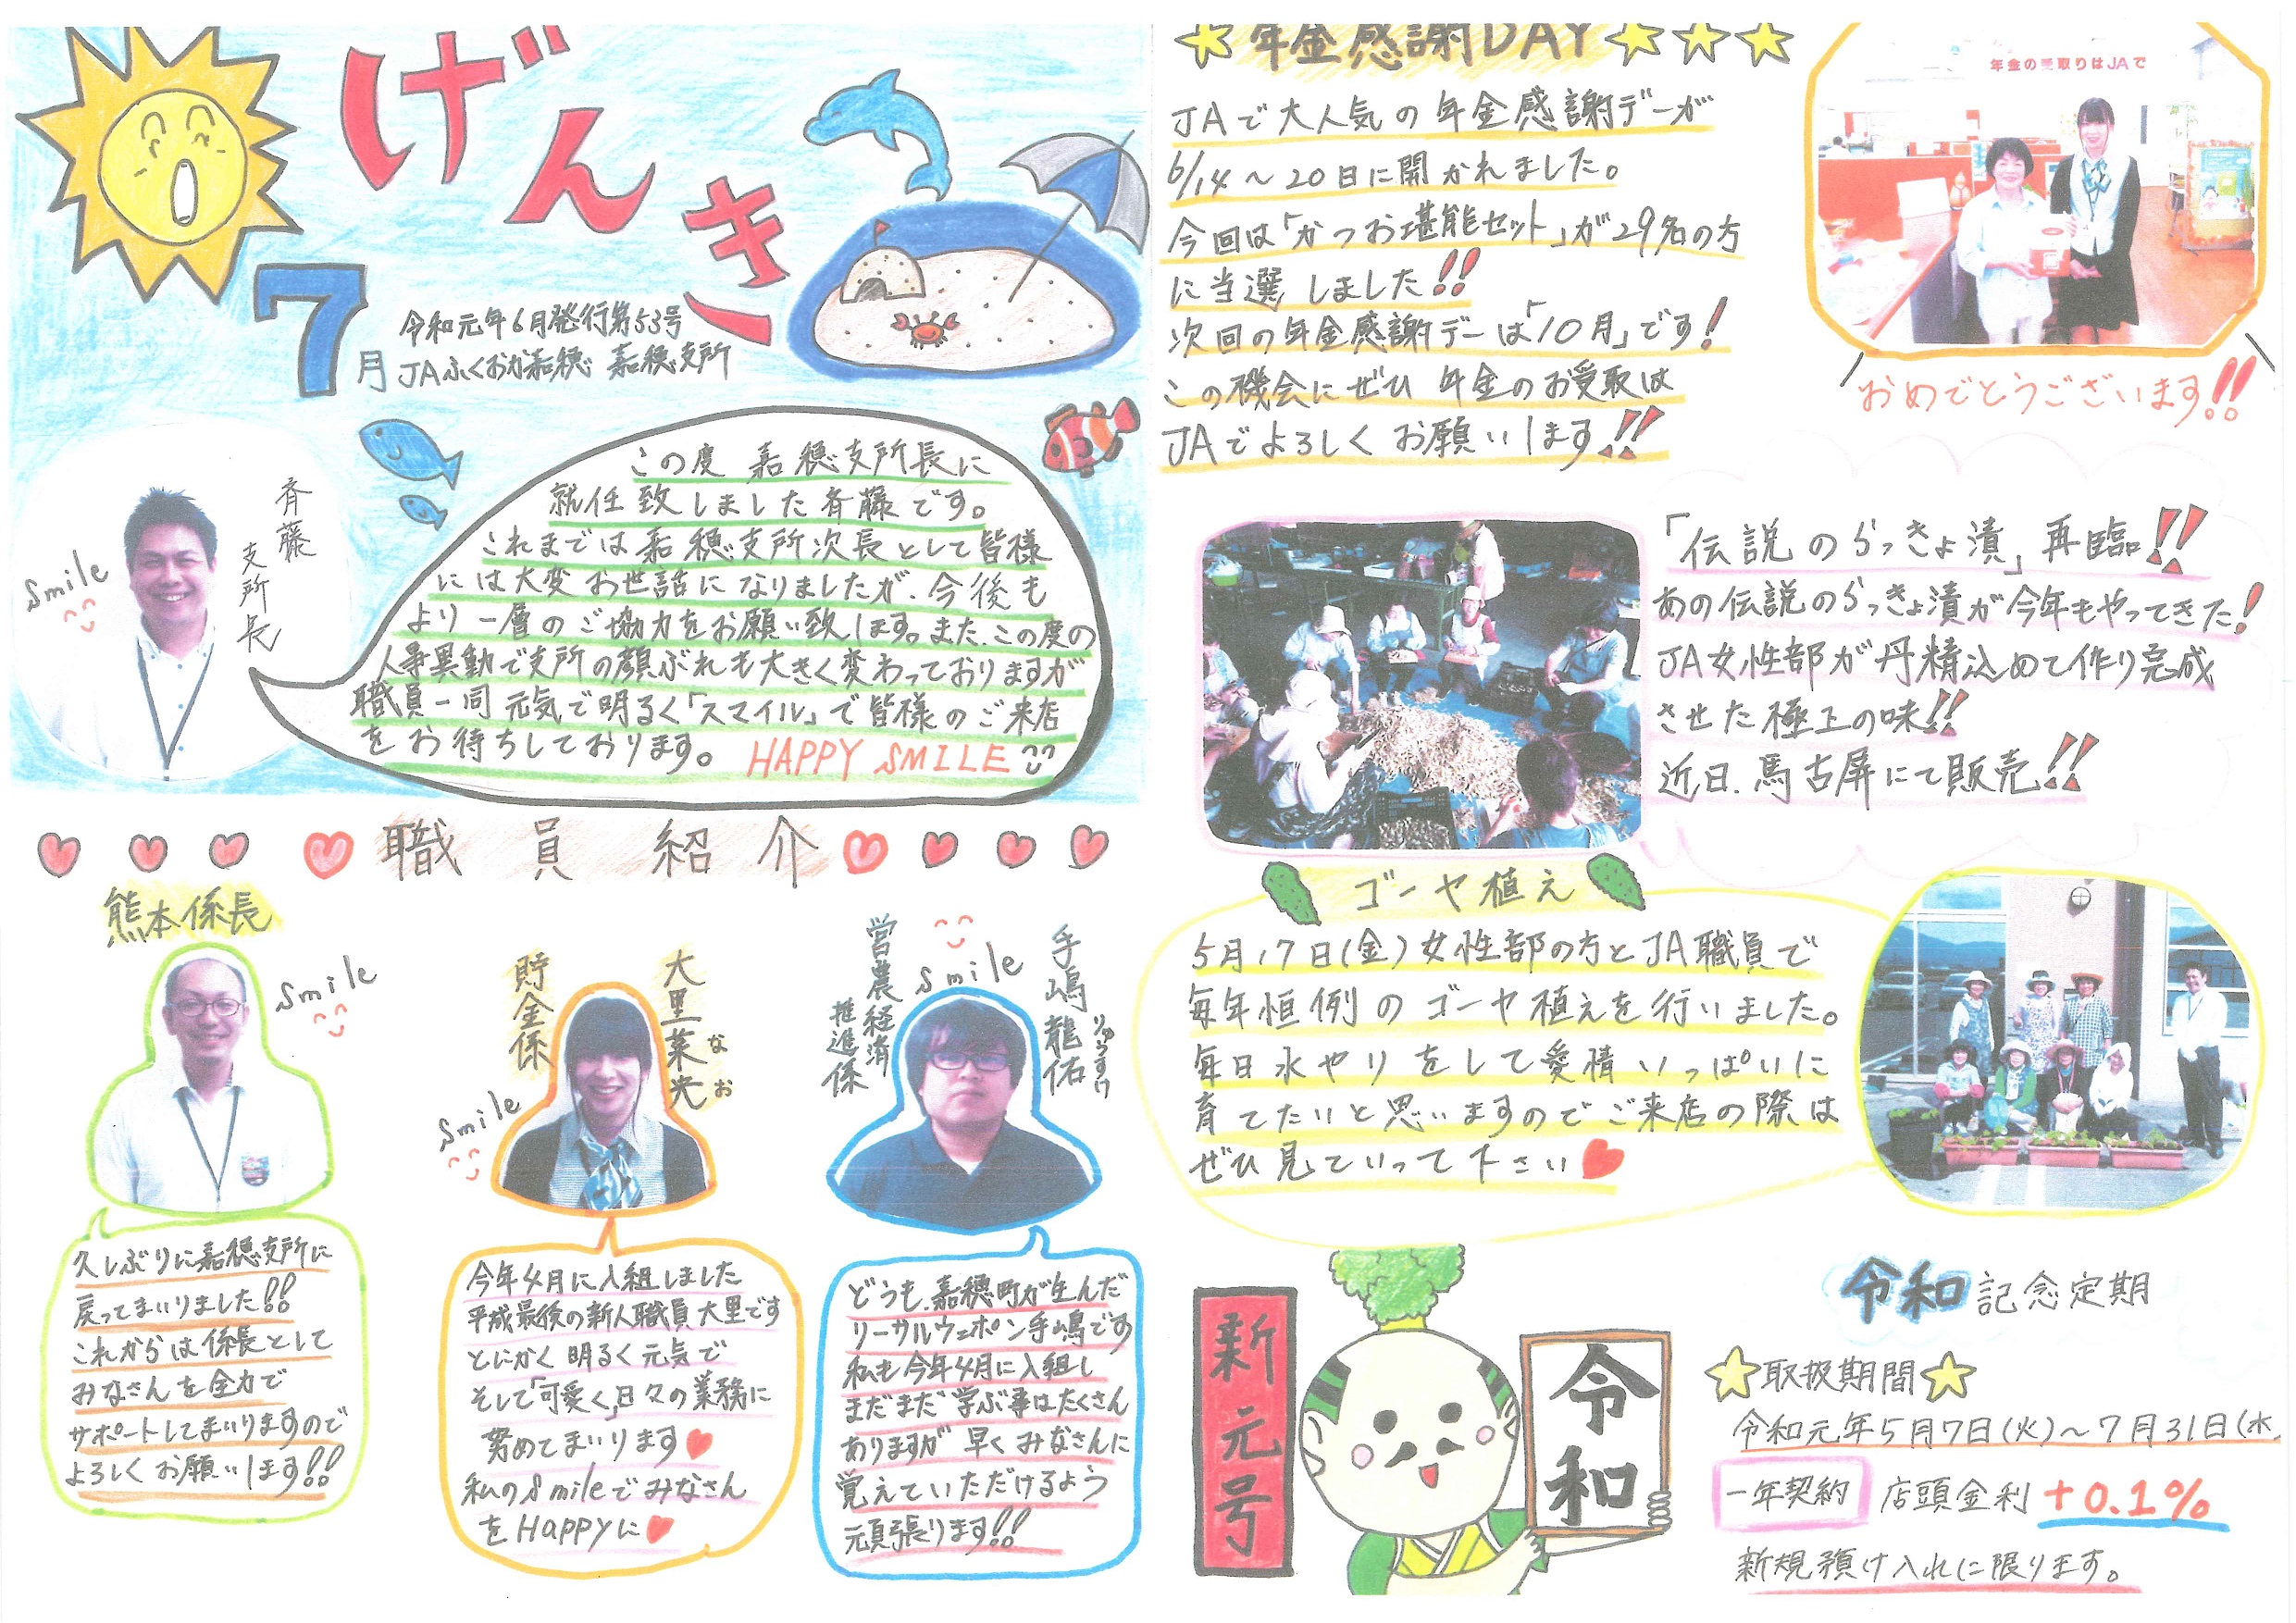 げんき
7月
令和元年6月発行第53号
JAふくおか嘉穂 嘉穂支所
斉藤
支所長
smile
この度 嘉穂支所長に
就任致しました斉藤です。
これまでは嘉穂支所次長として皆様
には大変お世話になりましたが、今後も
より一層のご協力をお願い致します。また、この度の
人事異動で支所の顔ぶれも大きく変わっておりますが
職員一同 元気で明るく「スマイル」で皆様のご来店
をお待ちしております。 HAPPY SMILE
職員紹介
熊本係長
smile
久しぶりに嘉穂支所に
戻ってまいりました!!
これからは係長として
みなさんを全力で
サポートしてまいりますので
よろしくお願いします!!
貯金係
大里菜央
なお
smile
今年4月に入組しました
平成最後の新人職員大里です
とにかく明るく元気で
そして「可愛く」日々の業務に
努めてまいります
私のsmileでみなさん
をHappyに
営農経済
推進係
smile
手嶋龍佑
りゅうすけ
どうも、嘉穂町が生んだ
リーサルウェポン手嶋です
私も今年4月に入組し
まだまだ学ぶ事はたくさん
ありますが 早くみなさんに
覚えていただけるよう
頑張ります!!
年金感謝DAY
JAで大人気の年金感謝デーが
6/14～20日に開かれました。
今回は「かつお堪能セット」が29名の方
に当選しました!!
次回の年金感謝デーは「10月」です!
この機会にぜひ 年金のお受取は
JAでよろしくお願いします!!
年金の受取りはJAで
おめでとうございます!!
「伝説のらっきょ漬」再臨!!
あの伝説のらっきょ漬が今年もやってきた!
JA女性部が丹精込めて作り完成
させた極上の味!!
近日、馬古屏にて販売!!
ゴーヤ植え
5月17日(金)女性部の方とJA職員で
毎年恒例のゴーヤ植えを行いました。
毎日水やりをして愛情いっぱいに
育てたいと思いますのでご来店の際は
ぜひ見ていって下さい
新元号
令和
令和記念定期
取扱期間
令和元年5月7日(火)～7月31日(水
一年契約 店頭金利 +0.1%
新規預け入れに限ります。